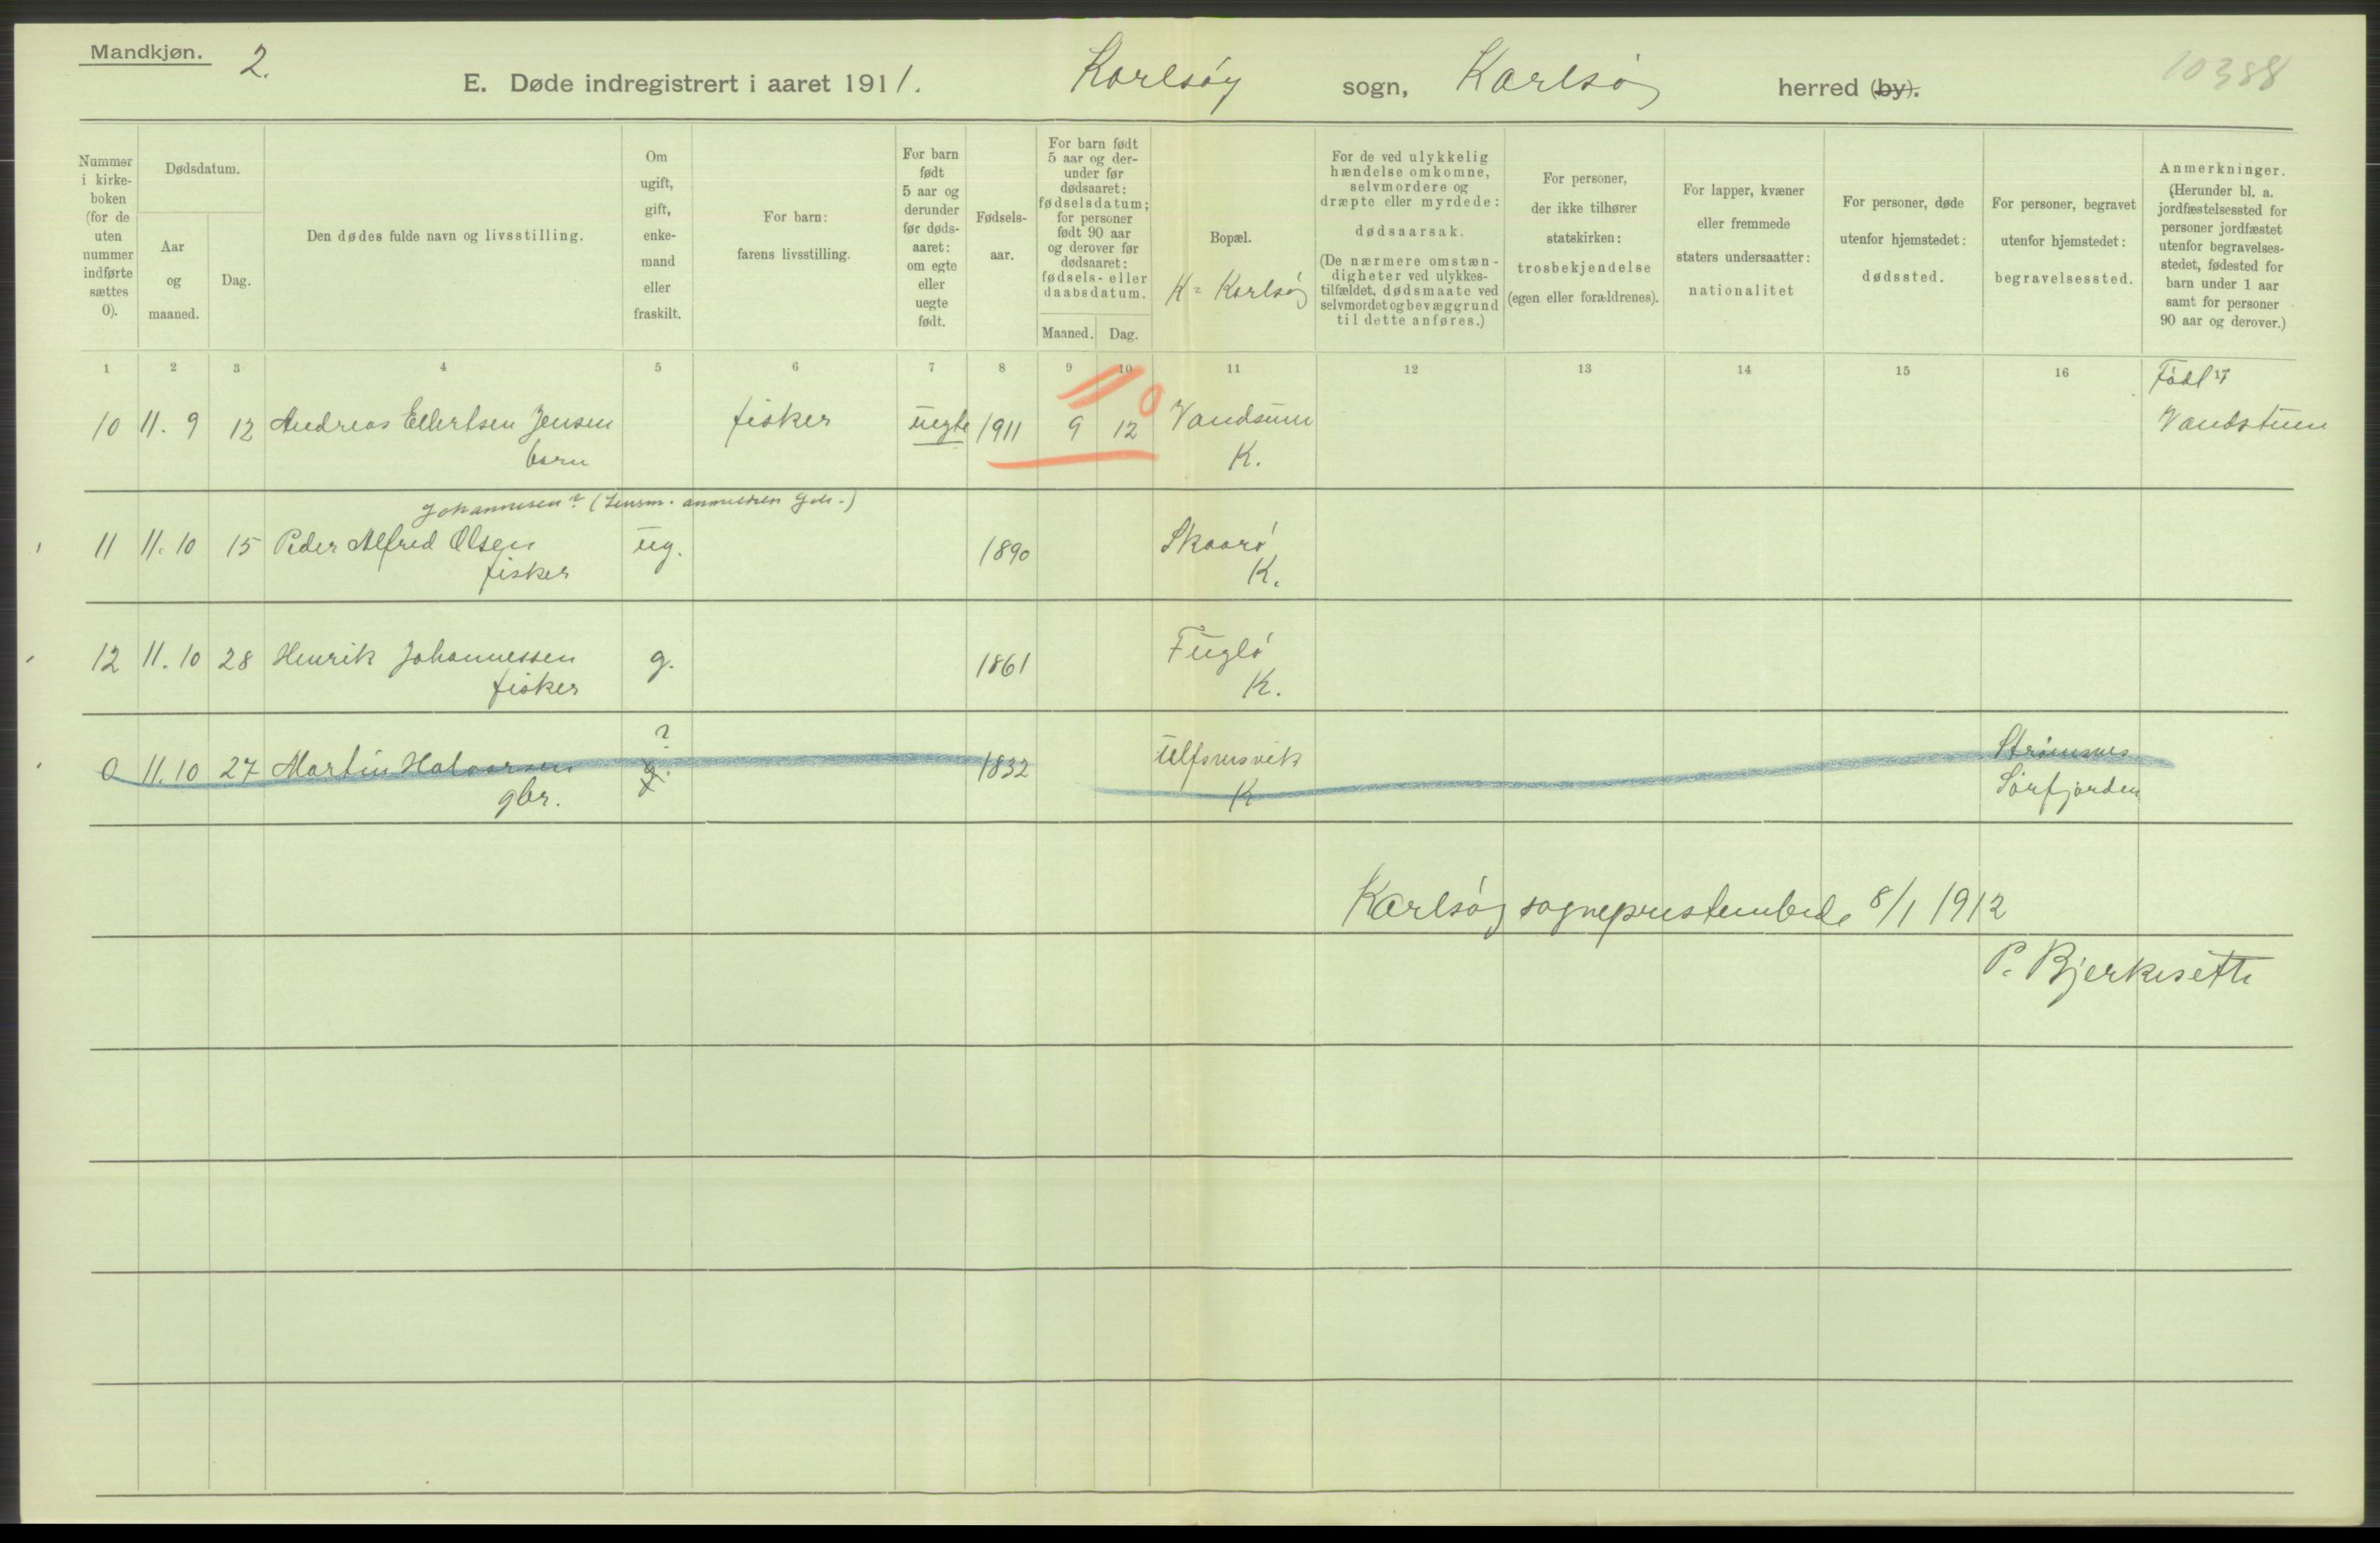 Mandkjøn. 2. 10388
E. Døde indregistrert i aaret 1911. Karlsöy sogn, Karlsöy herred (by).
Nummer i kirke-boken (for de uten nummer indførte sættes 0).
Dødsdatum.
Aar og maaned.
Dag.
Den dødes fulde navn og livsstilling.
Om ugift, gift, enke-mand eller fraskilt.
For barn: farens livsstilling.
For barn født 5 aar og derunder før døds-aaret: om egte eller uegte født.
Fødsels-aar.
For barn født 5 aar og der-under før dødsaaret: fødselsdatum; for personer født 90 aar og derover før dødsaaret: fødsels- eller daabsdatum.
Maaned. Dag.
Bopæl.
K = Karlsöy
For de ved ulykkelig hændelse omkomne, selvmordere og dræpte eller myrdede: dødsaarsak. (De nærmere omstæn-digheter ved ulykkes-tilfældet, dødsmaate ved selvmordet og bevæggrund til dette anføres.)
For personer, der ikke tilhører statskirken: trosbekjendelse (egen eller forældrenes).
For lapper, kvæner eller fremmede staters undersaatter: nationalitet
For personer, døde utenfor hjemstedet: dødssted.
For personer, begravet utenfor hjemstedet: begravelsessted.
Anmerkninger. (Herunder bl. a. jordfæstelsessted for personer jordfæstet utenfor begravelses-stedet, fødested for barn under 1 aar samt for personer 90 aar og derover.)
1 2 3 4 5 6 7 8 9 10 11 12 13 14 15 16
Född
10 11. 9 12 Andreas Ellertsen Jensen fisker uegte 1911 9 12 0 Vandstuen
barn K.
Johannesen? (Lensm. anmeldsen )
11 11. 10 15 Peder Alfred Olsen ug. 1890 Skaarö
fisker K.
12 11. 10 28 Henrik Johannessen g. 1861 Fuglö
fisker K.
?
0 11. 10 27 Martin Halvorsen g. 1832 Ulfsnesvik Strömsnes
gbr. K Sörfjorden
Karlsöy sogneprestembede 8/1 1912
P. Bjerkesett